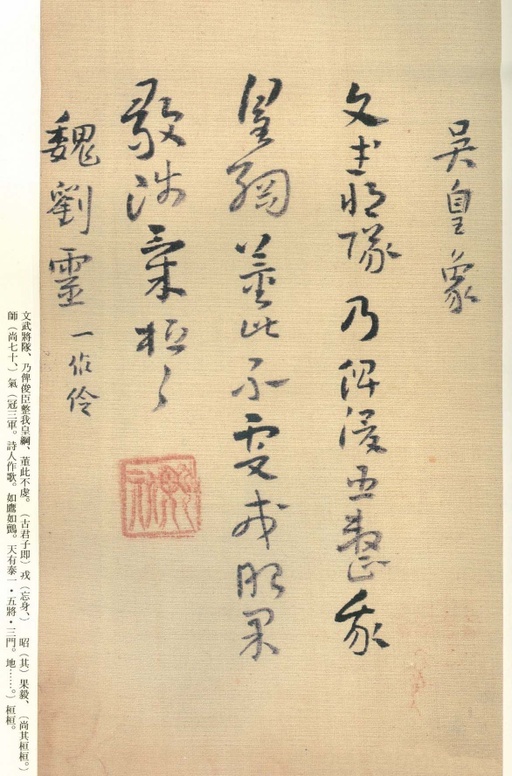 吴皇象
文武將隊乃俾俊臣整我
皇綱董此不虔戎昭果
毅師氣桓〻
魏劉靈一作伶
文武將隊、乃俾俊臣整我皇綱、董此不虔。（古君子即）戎（忘身、）昭（其）果毅、（尚其桓桓。）
師（尚七十、）氣（冠三軍。詩人作歌。如鷹如鸇。天有泰一・五將・三門。地……。）桓桓。